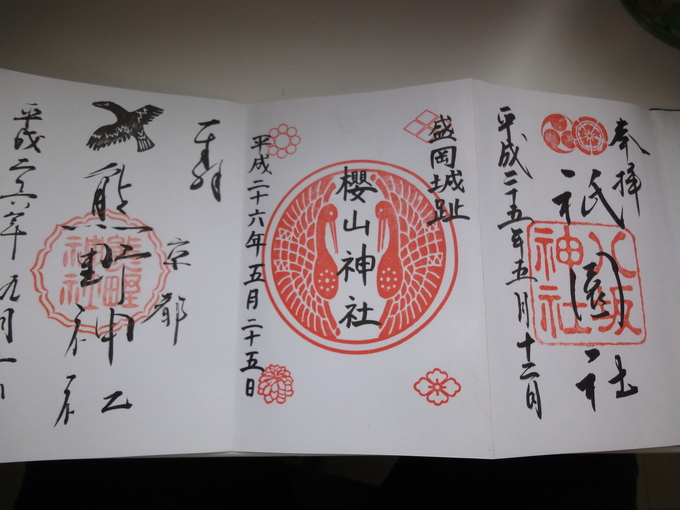 奉拝
祇園社
八坂神社
平成二十五年五月十二日
盛岡城址
櫻山神社
平成二十六年五月二十五日
奉拝
京都
熊野神社
熊野神社
平成二六年九月一日